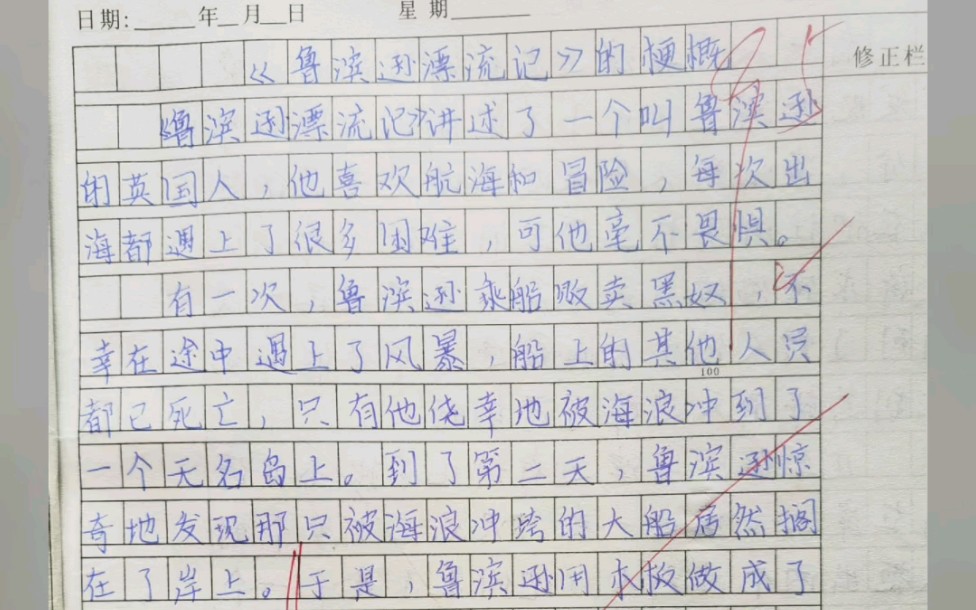 日期：年月日 星期
《鲁滨逊漂流记》的梗概
修正栏
《鲁滨逊漂流记》讲述了一个叫鲁滨逊
的英国人，他喜欢航海和冒险，每次出
海都遇上了很多困难，可他毫不畏惧。
有一次，鲁滨逊乘船贩卖黑奴，不
幸在途中遇上了风暴，船上的其他人员
100
都已死亡，只有他侥幸地被海浪冲到了
一个无名岛上。到了第二天，鲁滨逊惊
奇地发现那只被海浪冲垮的大船居然搁
在了岸上。于是，鲁滨逊用木板做成了